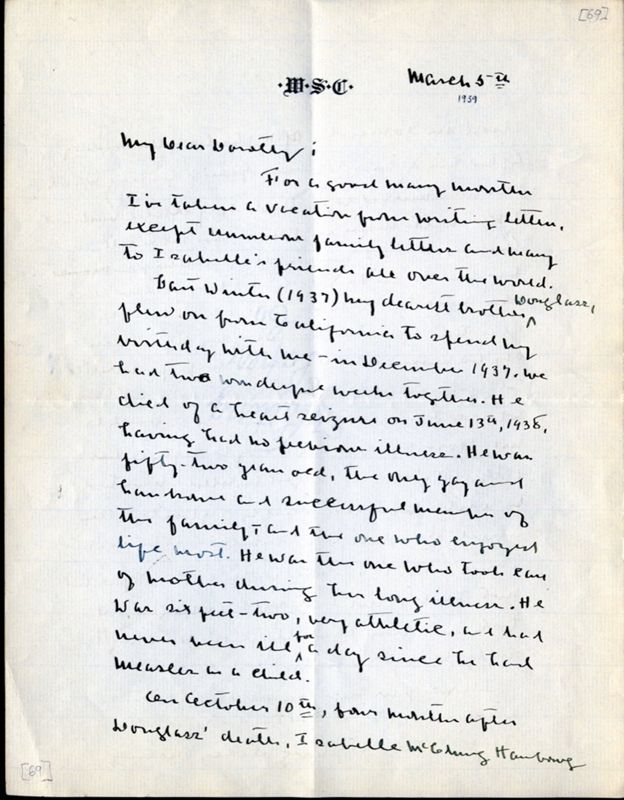 [69]
·W·S·C·
March 5th
1939
My Dear Dorothy;
For a good many months
I've taken a vacation from writing letters,
except numerous family letters and many
to Isabelle's friends all over the world.
Last Winter (1937) my dearest brother, Douglass,
flew on from California to spend my
birthday with me - in December 1937. We
had two wonderful weeks together. He
died of a heart seizure on June 13th, 1938,
having had no previous illness. He was
fifty-two years old, the only gay and
handsome and successful member of
the family - and the one who enjoyed
life most. He was the one who took care
of mother during her long illness. He
was six feet-two, very athletic, and had
never been ill for a day since he had
measles as a child.
On October 10th, four months after
Douglass' death, Isabelle McClung Hambourg
[69]